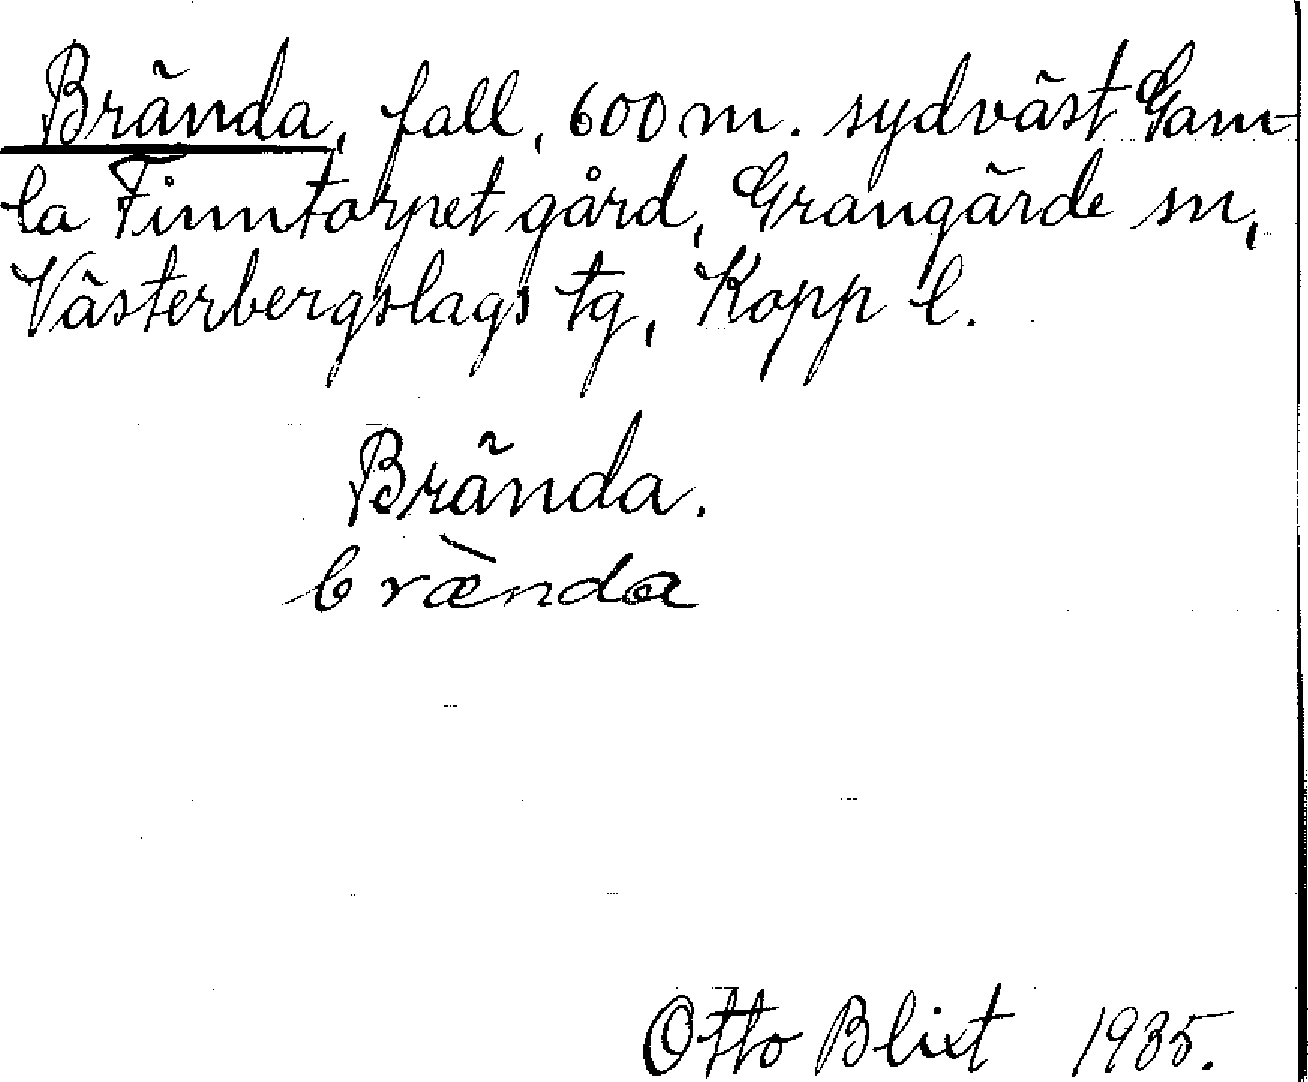 Brända, fall, 600 m. sydväst Gam-
la Finntorpet gård, Grangärde sn,
Västerbergslags tg, Kopp l.
Brända.
bræ̀nda
Otto Blixt 1935.